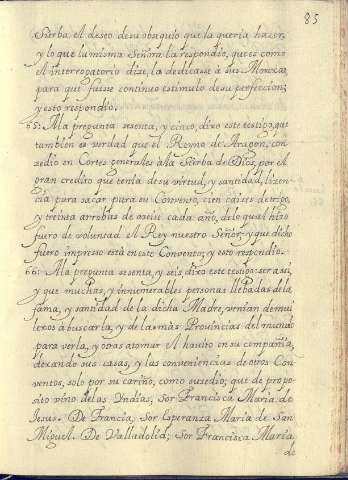 85
Sierba el deseo de su obsequio que la queria hazer,
y lo que la misma Señora la respondio, que es como
el interrogatorio dize, la dedicasse à sus Monxas,
para que fuesse continuo estimulo de su perfeccion;
y esto respondio.
65: A la pregunta sesenta, y cinco, dixo este testigo, que
tambien es verdad que el Reyno de Aragon, con-
zedio en Cortes generales à la Sierba de Dios, por el
gran credito que tenía de su virtud, y santidad, lizen-
cia para sacar para su Convento, cien caizes de trigo,
y treinta arrobas de aceite cada año, de lo qual hizo
fuero de voluntad el Rey nuestro Señor; y que dicho
fuero impreso està en este Convento; y esto respondio.
66: A la pregunta sesenta, y seis dixo este testigo: ser assi,
y que muchas, y innumerables personas llebadas de la
fama, y santidad de la dicha Madre, venían de mui
lexos à buscarla, y de las mas Provincias del mundo
para verla, y otras à tomar el habito en su compañia,
dexando sus casas, y las conveniencias de otros Con-
ventos, solo por su cariño, como susedio; que de propo-
sito vino de las Yndias, Sor Francisca Maria de
Jesus. De Francia, Sor Esperanza Maria de San
Miguel. De Valladolid, Sor Francisca Maria
de